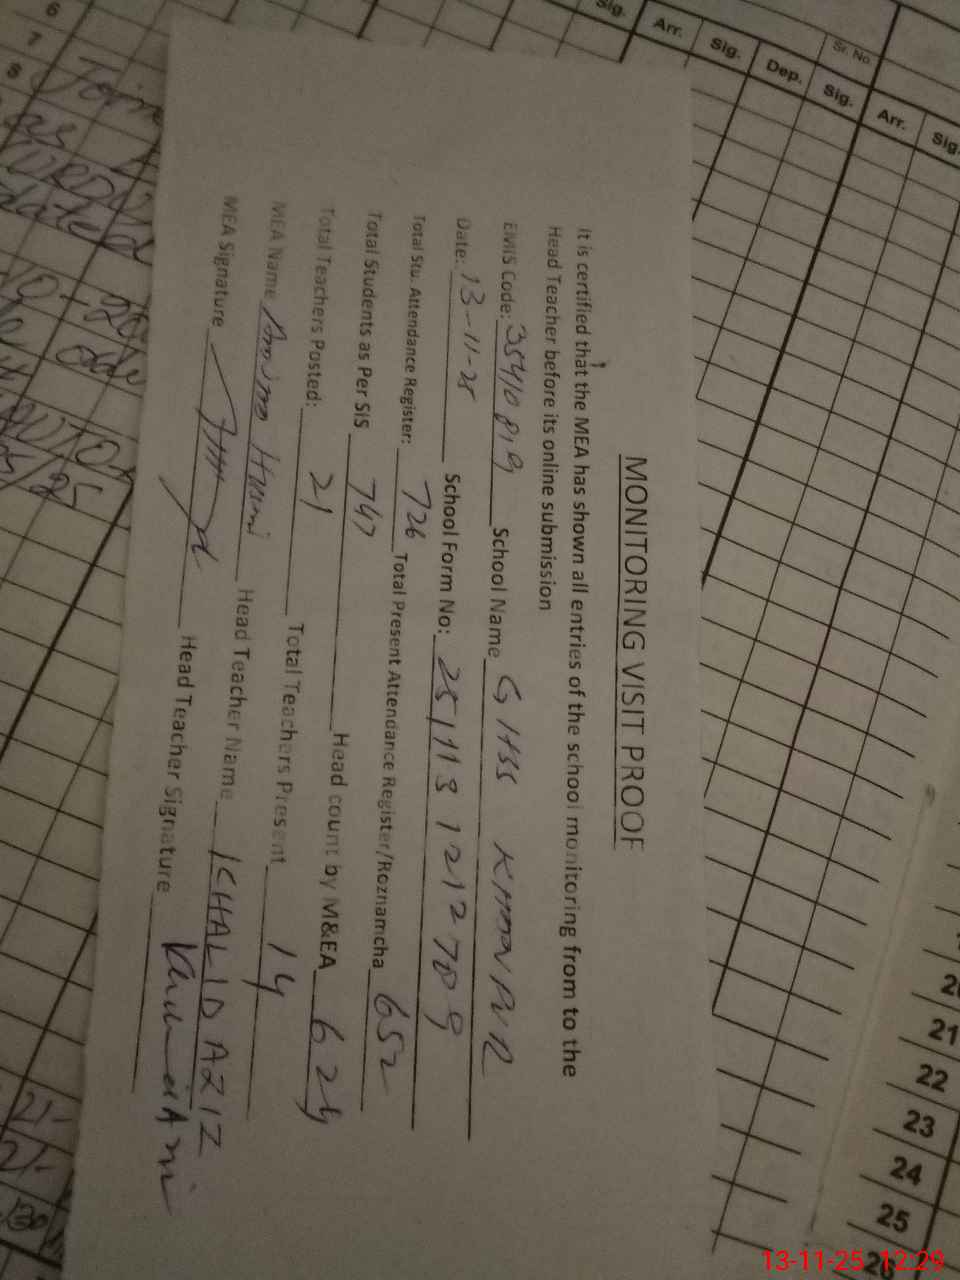 MONITORING VISIT PROOF
It is certified that the MEA has shown all entries of the school monitoring from to the
Head Teacher before its online submission
EMIS Code: 35410819 School Name GHSS KHANPUR
Date: 13-11-25 School Form No: 2511131212709
Total Stu. Attendance Register: 726 Total Present Attendance Register/Roznamcha 652
Total Students as Per SIS 747 Head count by M&EA 624
Total Teachers Posted: 21 Total Teachers Present 14
MEA Name Head Teacher Name KHALID AZIZ
MEA Signature Head Teacher Signature
Sig. Arr. Sig. Dep. Sig. Arr. Sig.
Sr. No.
6
7
8
21
22
23
24
25
13-11-25 12:29